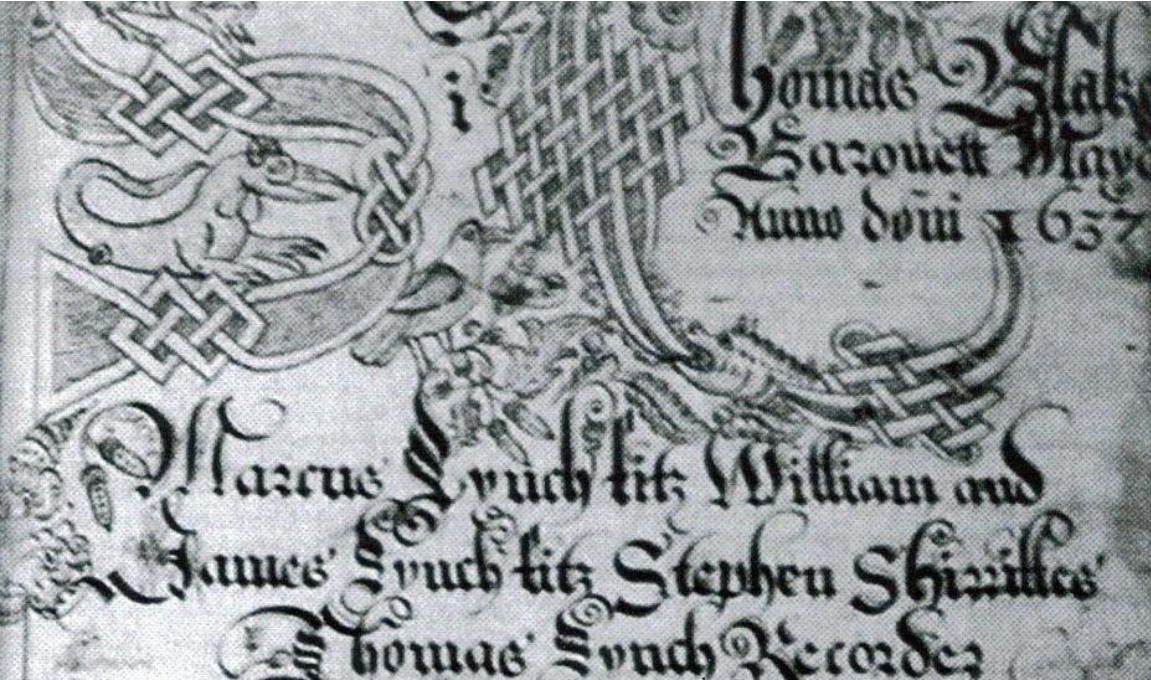 i
Thomas Blake
Baronett Mayo
Anno dom̄i 1637
Marcus Lynch fitz William and
James Lynch fitz Stephen Shirriffes
Thomas Lynch Recorder